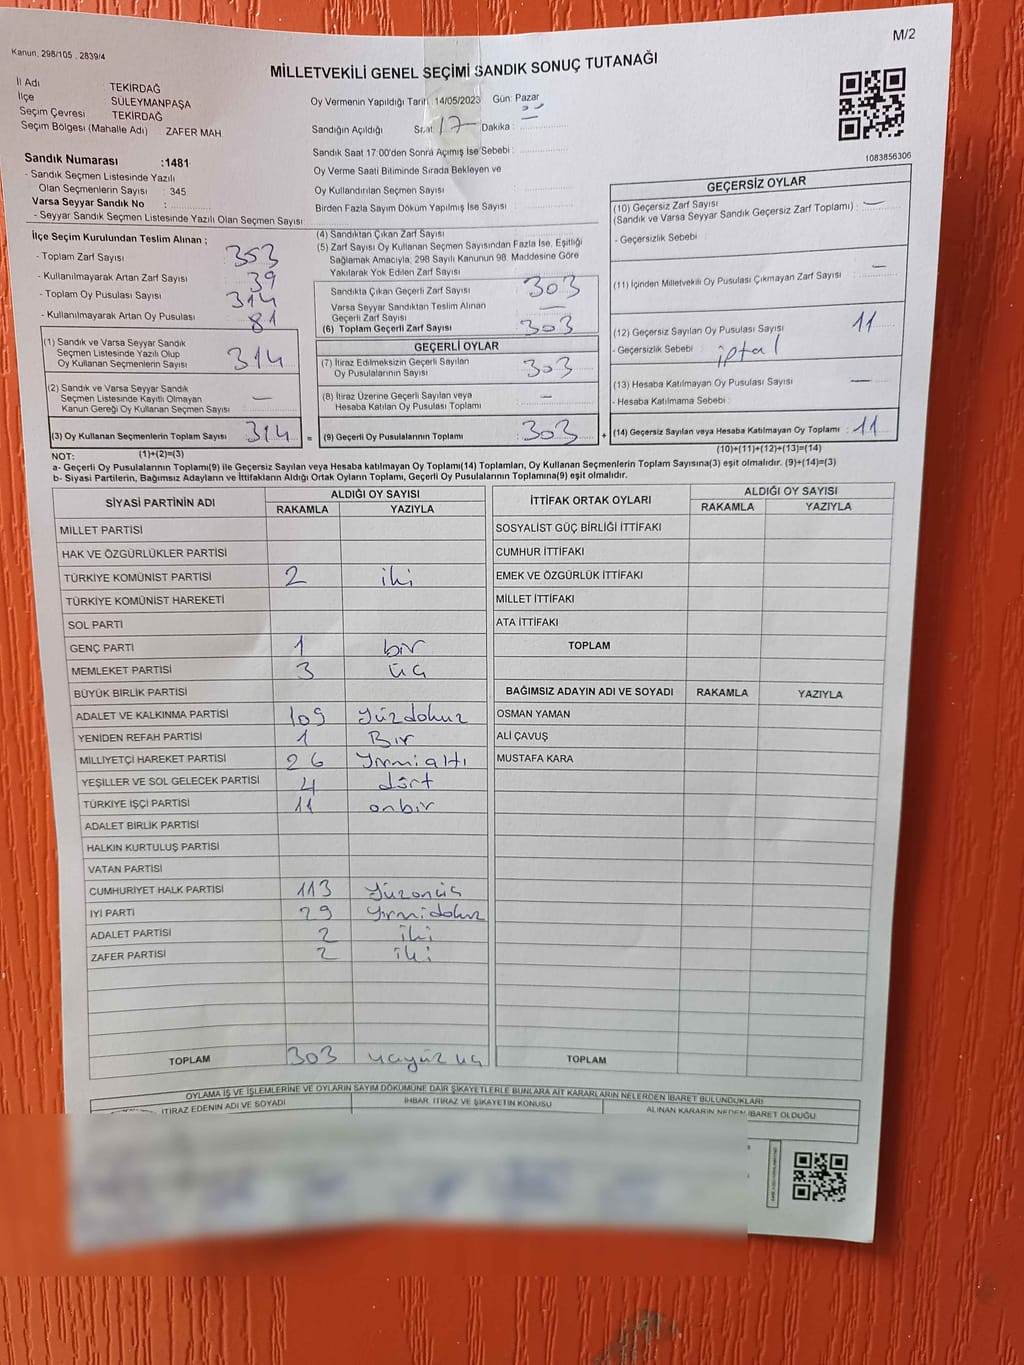 M/2
Kanun, 298/105 , 2839/4
MİLLETVEKİLİ GENEL SEÇİMİ SANDIK SONUÇ TUTANAĞI
İl Adı : TEKİRDAĞ
İlçe : SÜLEYMANPAŞA
Seçim Çevresi : TEKİRDAĞ
Seçim Bölgesi (Mahalle Adı) : ZAFER MAH
Sandık Numarası :1481
- Sandık Seçmen Listesinde Yazılı
Olan Seçmenlerin Sayısı : 345
Varsa Seyyar Sandık No :
- Seyyar Sandık Seçmen Listesinde Yazılı Olan Seçmen Sayısı
Oy Vermenin Yapıldığı Tarih: 14/05/2023 Gün: Pazar
Sandığın Açıldığı Saat: 17 Dakika :
Sandık Saat 17:00'den Sonra Açımış İse Sebebi :
Oy Verme Saati Bitiminde Sırada Bekleyen ve
Oy Kullandırılan Seçmen Sayısı :
Birden Fazla Sayım Döküm Yapılmış İse Sayısı :
1083856306
İlçe Seçim Kurulundan Teslim Alınan ;
- Toplam Zarf Sayısı : 353
- Kullanılmayarak Artan Zarf Sayısı : 39
- Toplam Oy Pusulası Sayısı : 314
- Kullanılmayarak Artan Oy Pusulası : 81
(1) Sandık ve Varsa Seyyar Sandık
Seçmen Listesinde Yazılı Olup
Oy Kullanan Seçmenlerin Sayısı : 314
(2) Sandık ve Varsa Seyyar Sandık
Seçmen Listesinde Kayıtlı Olmayan
Kanun Gereği Oy Kullanan Seçmen Sayısı : —
(3) Oy Kullanan Seçmenlerin Toplam Sayısı : 314
(1)+(2)=(3)
(4) Sandıktan Çıkan Zarf Sayısı :
(5) Zarf Sayısı Oy Kullanan Seçmen Sayısından Fazla İse, Eşitliği
Sağlamak Amacıyla; 298 Sayılı Kanunun 98. Maddesine Göre
Yakılarak Yok Edilen Zarf Sayısı :
Sandıkta Çıkan Geçerli Zarf Sayısı : 303
Varsa Seyyar Sandıktan Teslim Alınan
Geçerli Zarf Sayısı : —
(6) Toplam Geçerli Zarf Sayısı : 303
GEÇERLİ OYLAR
(7) İtiraz Edilmeksizin Geçerli Sayılan
Oy Pusulalarının Sayısı : 303
(8) İtiraz Üzerine Geçerli Sayılan veya
Hesaba Katılan Oy Pusulası Toplamı : —
= (9) Geçerli Oy Pusulalarının Toplamı : 303
GEÇERSİZ OYLAR
(10) Geçersiz Zarf Sayısı
(Sandık ve Varsa Seyyar Sandık Geçersiz Zarf Toplamı) : —
- Geçersizlik Sebebi :
(11) İçinden Milletvekili Oy Pusulası Çıkmayan Zarf Sayısı : —
(12) Geçersiz Sayılan Oy Pusulası Sayısı : 11
- Geçersizlik Sebebi : iptal
(13) Hesaba Katılmayan Oy Pusulası Sayısı : —
- Hesaba Katılmama Sebebi :
+ (14) Geçersiz Sayılan veya Hesaba Katılmayan Oy Toplamı : 11
(10)+(11)+(12)+(13)=(14)
NOT:
a- Geçerli Oy Pusulalarının Toplamı(9) ile Geçersiz Sayılan veya Hesaba katılmayan Oy Toplamı(14) Toplamları, Oy Kullanan Seçmenlerin Toplam Sayısına(3) eşit olmalıdır. (9)+(14)=(3)
b- Siyasi Partilerin, Bağımsız Adayların ve İttifakların Aldığı Ortak Oyların Toplamı, Geçerli Oy Pusulalarının Toplamına(9) eşit olmalıdır.
SİYASİ PARTİNİN ADI ALDIĞI OY SAYISI
RAKAMLA YAZIYLA
MİLLET PARTİSİ
HAK VE ÖZGÜRLÜKLER PARTİSİ
TÜRKİYE KOMÜNİST PARTİSİ 2 iki
TÜRKİYE KOMÜNİST HAREKETİ
SOL PARTİ
GENÇ PARTİ 1 bir
MEMLEKET PARTİSİ 3 üç
BÜYÜK BİRLİK PARTİSİ
ADALET VE KALKINMA PARTİSİ 109 Yüzdokuz
YENİDEN REFAH PARTİSİ 1 Bir
MİLLİYETÇİ HAREKET PARTİSİ 26 Yirmialtı
YEŞİLLER VE SOL GELECEK PARTİSİ 4 dört
TÜRKİYE İŞÇİ PARTİSİ 11 onbir
ADALET BİRLİK PARTİSİ
HALKIN KURTULUŞ PARTİSİ
VATAN PARTİSİ
CUMHURİYET HALK PARTİSİ 113 Yüzonüç
İYİ PARTİ 29 Yirmidokuz
ADALET PARTİSİ 2 iki
ZAFER PARTİSİ 2 iki
TOPLAM 303 üçyüz üç
İTTİFAK ORTAK OYLARI ALDIĞI OY SAYISI
RAKAMLA YAZIYLA
SOSYALİST GÜÇ BİRLİĞİ İTTİFAKI
CUMHUR İTTİFAKI
EMEK VE ÖZGÜRLÜK İTTİFAKI
MİLLET İTTİFAKI
ATA İTTİFAKI
TOPLAM
BAĞIMSIZ ADAYIN ADI VE SOYADI RAKAMLA YAZIYLA
OSMAN YAMAN
ALİ ÇAVUŞ
MUSTAFA KARA
TOPLAM
OYLAMA İŞ VE İŞLEMLERİNE VE OYLARIN SAYIM DÖKÜMÜNE DAİR ŞİKAYETLERLE BUNLARA AİT KARARLARIN NELERDEN İBARET BULUNDUKLARI
İTİRAZ EDENİN ADI VE SOYADI İHBAR, İTİRAZ VE ŞİKAYETİN KONUSU ALINAN KARARIN NEDEN İBARET OLDUĞU